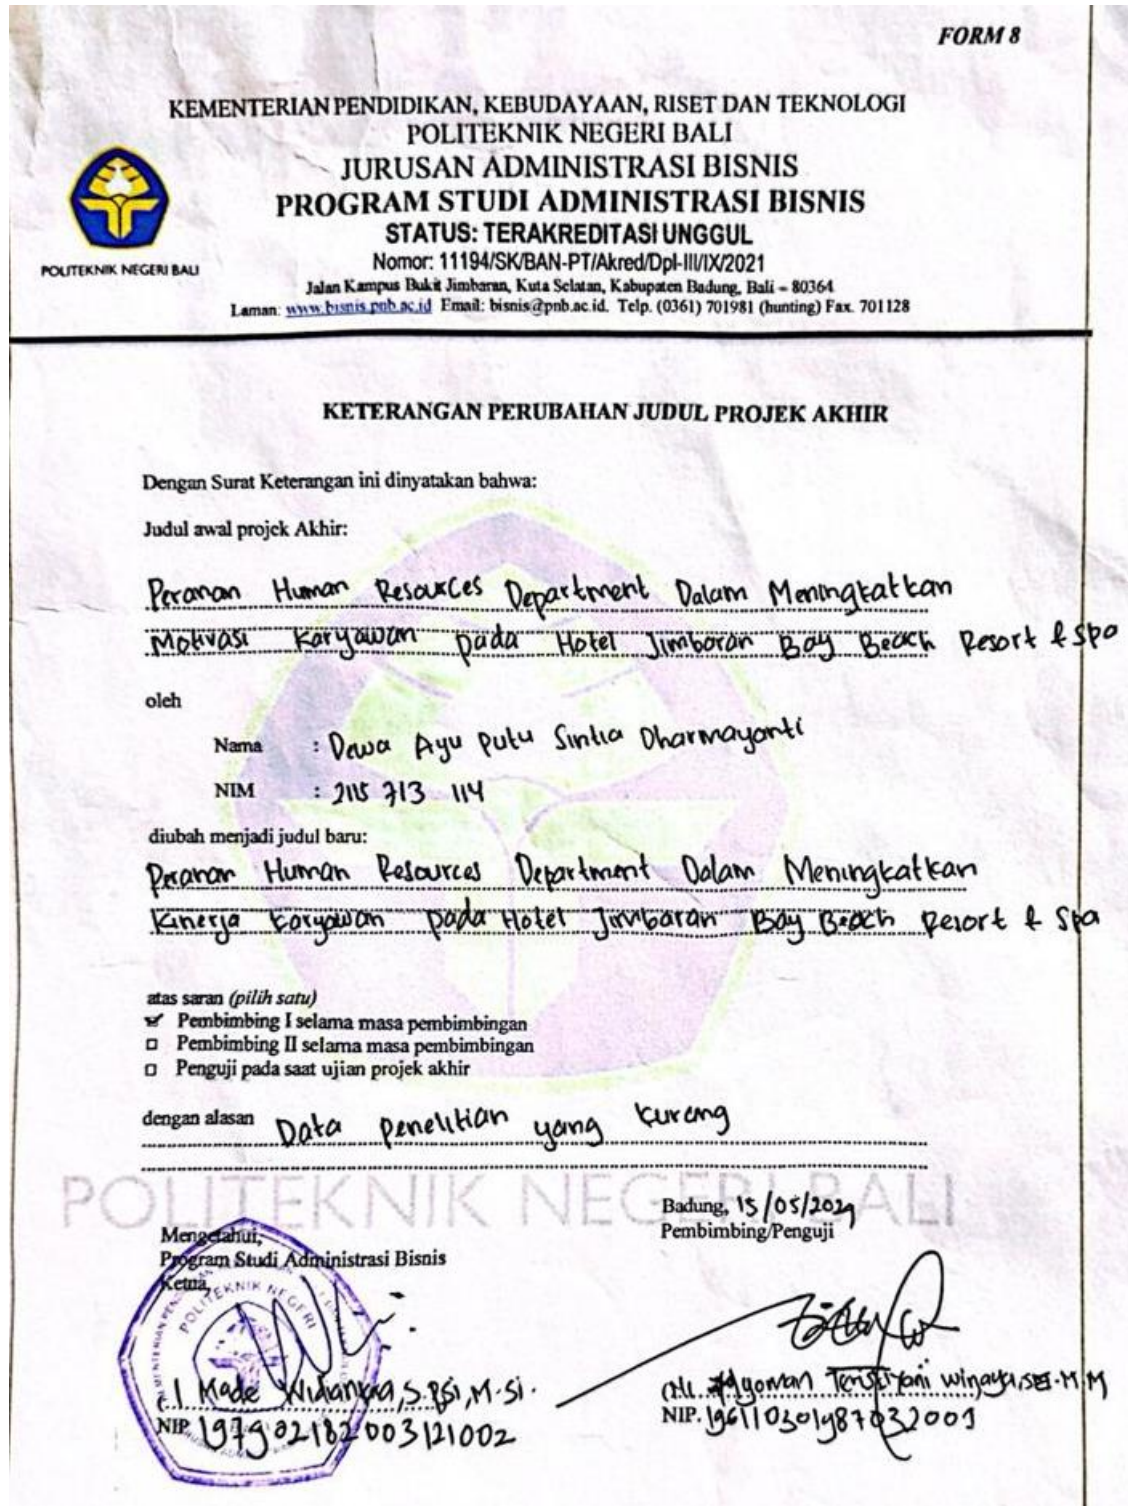 FORM 8
KEMENTERIAN PENDIDIKAN, KEBUDAYAAN, RISET DAN TEKNOLOGI
POLITEKNIK NEGERI BALI
JURUSAN ADMINISTRASI BISNIS
PROGRAM STUDI ADMINISTRASI BISNIS
STATUS: TERAKREDITASI UNGGUL
Nomor: 11194/SK/BAN-PT/Akred/Dpl-III/IX/2021
Jalan Kampus Bukit Jimbaran, Kuta Selatan, Kabupaten Badung, Bali – 80364
Laman: www.bisnis.pnb.ac.id Email: bisnis@pnb.ac.id. Telp. (0361) 701981 (hunting) Fax. 701128
POLITEKNIK NEGERI BALI
KETERANGAN PERUBAHAN JUDUL PROJEK AKHIR
Dengan Surat Keterangan ini dinyatakan bahwa:
Judul awal projek Akhir:
Peranan Human Resources Department Dalam Meningkatkan
Motivasi Karyawan pada Hotel Jimbaran Bay Beach Resort & Spa
oleh
Nama : Dewa Ayu Putu Sintia Dharmayanti
NIM : 2115 713 114
diubah menjadi judul baru:
Peranan Human Resources Department Dalam Meningkatkan
Kinerja Karyawan pada Hotel Jimbaran Bay Beach Resort & Spa
atas saran (pilih satu)
Pembimbing I selama masa pembimbingan
Pembimbing II selama masa pembimbingan
Penguji pada saat ujian projek akhir
dengan alasan Data penelitian yang kurang
POLITEKNIK NEGERI BALI
Badung, 15/05/2024
Pembimbing/Penguji
Mengetahui,
Program Studi Administrasi Bisnis
Ketua,
POLITEKNIK NEGERI
I Made Widiantara, S.Psi, M.Si.
NIP. 197902182003121002
Nyoman Teristiyani Winaya, SE. M.M
NIP. 196110301987032003